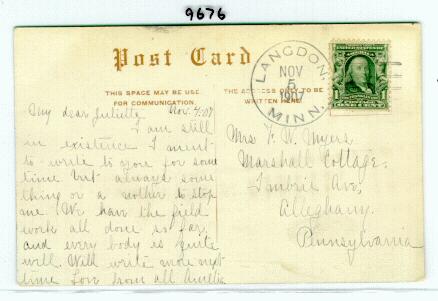 9676
Post Card
THIS SPACE MAY BE USED
FOR COMMUNICATION.
THE ADDRESS ONLY TO BE
WRITTEN HERE
LANGDON,
NOV
5
1907
MINN.
1
My dear Juliette Nov. 4/07
I am still
in existence I meant
to write to you for some
time but always some
thing or a nother to stop
me. We have the field
work all done so far,
and every body is quite
well. Will write more next
time Love from all Amelia
Mrs F. W. Myers
Marshall Cottage.
Imbrie Ave,
Alleghany.
Pennsylvania